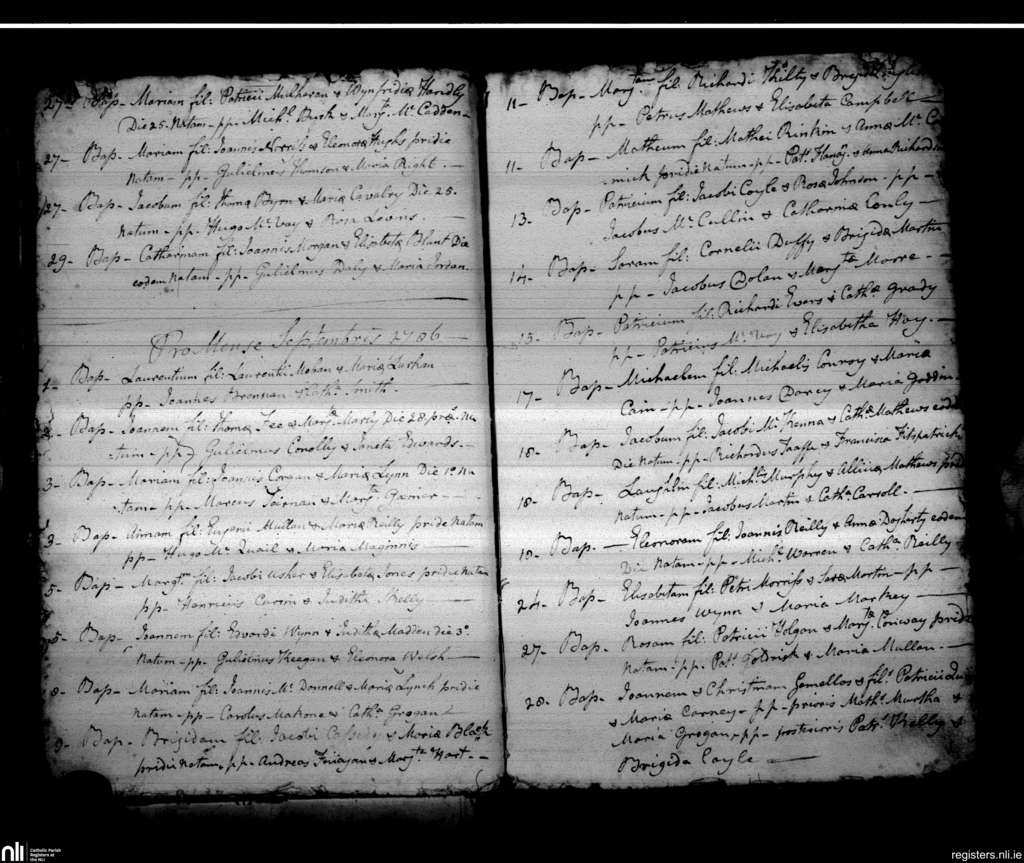 27- Bap- Mariam fil: Patricii Mulharan & Wynfridiæ Hardly
Die 25. Natam - pp - Mich.l Burk & Mary Mc Cadden -
27- Bap- Mariam fil: Joannis Norris & Elenoræ Hughs pridie
Natam - pp - Gulielmus Thomson & Maria Right -
27- Bap- Jacobum fil: Thomæ Byrn & Mariæ Cavalry Die 25.
Natum - pp - Hugo Mc Vay & Rosa Lowns.
29- Bap- Catharinam fil: Joannis Morgan & Elisabetæ Blunt Die
eodem Natam - pp - Gulielmus Daly & Maria Jordan
Pro Mense Septembris 1786
1- Bap- Laurentium fil: Laurentii Mahan & Mariæ Lushan
pp- Joannes Brennan & Cath.a Smith
2- Bap- Joannem fil: Thomæ Fee & Mary Marly Die 28 præ. Na
tum - pp Gulielmus Conolly & Janeta Edwards -
3- Bap- Mariam fil: Joannis Corran & Mariæ Lynn Die 1o Na
tam - pp - Marcus Tiernan & Marg.t
3- Bap- fil: Eugenii Mullan & Mariæ Reilly pridie Natam
pp- Hugo Mc Quail & Maria Maginnis
5- Bap- Margtm fil: Jacobi Usher & Elisabetæ Jones pridie Natam
pp- Henricus & Juditha Kelly
5- Bap- Joannem fil: Edvardi Wynn & Judithæ Madden die 3o
Natum - pp - Gulielmus Keegan & Eleonora Welsh -
8- Bap- Mariam fil: Joannis Mc Donnell & Mariæ Lynch pridie
Natam - pp - Carolus Makone & Cath.a Grogan
9- Bap- Brigidam fil: Jacobi Cassedy & Mariæ Black
pridie Natam, pp - Andreas Finigan & Marg.ta Hart -
11- Bap- Marg.tam fil: Richardi Tkilty &
pp- Petrus Mathews & Elisabeta Campbell
11- Bap- Matheum fil: Mathei Rinkin & Annæ Mc
mick pridie Natum - pp - Patt. & Anna Richardson
13- Bap- Patricium fil: Jacobi Coyle & Rosæ Johnson - pp -
Jacobus Mc Cullin & Catharina Conly -
14- Bap- Saram fil: Cornelii Duffy & Brigidæ Martin
pp - Jacobus Dolan & Marg.ta Moore -
15- Bap- Patricium fil: Richardi Evers & Cathæ Grady
pp - Patricius Mc & Elisabetha Hoy. -
17- Bap- Michaelem fil: Michaelis Conroy & Mariæ
Cain - pp - Joannes Darcy & Maria Goddin
18- Bap- Jacobum fil: Jacobi Mc Kenna & Cathæ Mathews eodem
Die Natum - pp - Richardus Taaffe & Francisca Fitspatrick
18- Bap- Laughlin fil: Michlis Murphy & Aliciæ Mathews pridie
Natum - pp - Jacobus Martin & Catha Carroll -
19- Bap. - Eleonorem fil: Joannis Reilly & Annæ Dogherty eodem
Die Natam - pp - Mich.l Warren & Catha Reilly
24- Bap- Elisabetam fil: Petri Morriss & Saræ Mortin - pp -
Joannes Wynn & Maria Markey -
27- Bap. Rosam fil: Patricii Folgan & Marg.tæ Conway pridie
Natam: pp. Patt. Goldrick & Maria Mullan -
28- Bap- Joannem & Christinam Gemellos & filos Patricii
& Mariæ Carney - pp - prioris Math.s Murtha &
Maria Grogan, pp - posterioris Patr.s Kelly &
Brigida Coyle
nli
Catholic Parish
Registers at
the NLI
registers.nli.ie